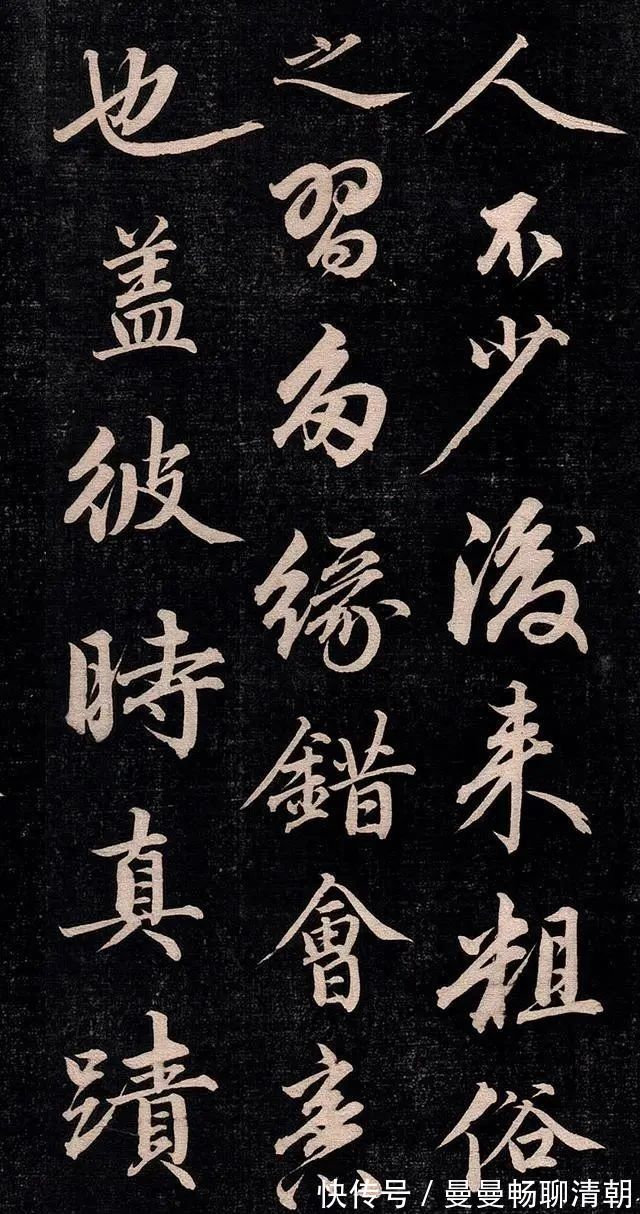 人不少後来粗俗
之習多緣錯會
也盖彼時真蹟
快传号 / 曼曼畅聊清朝